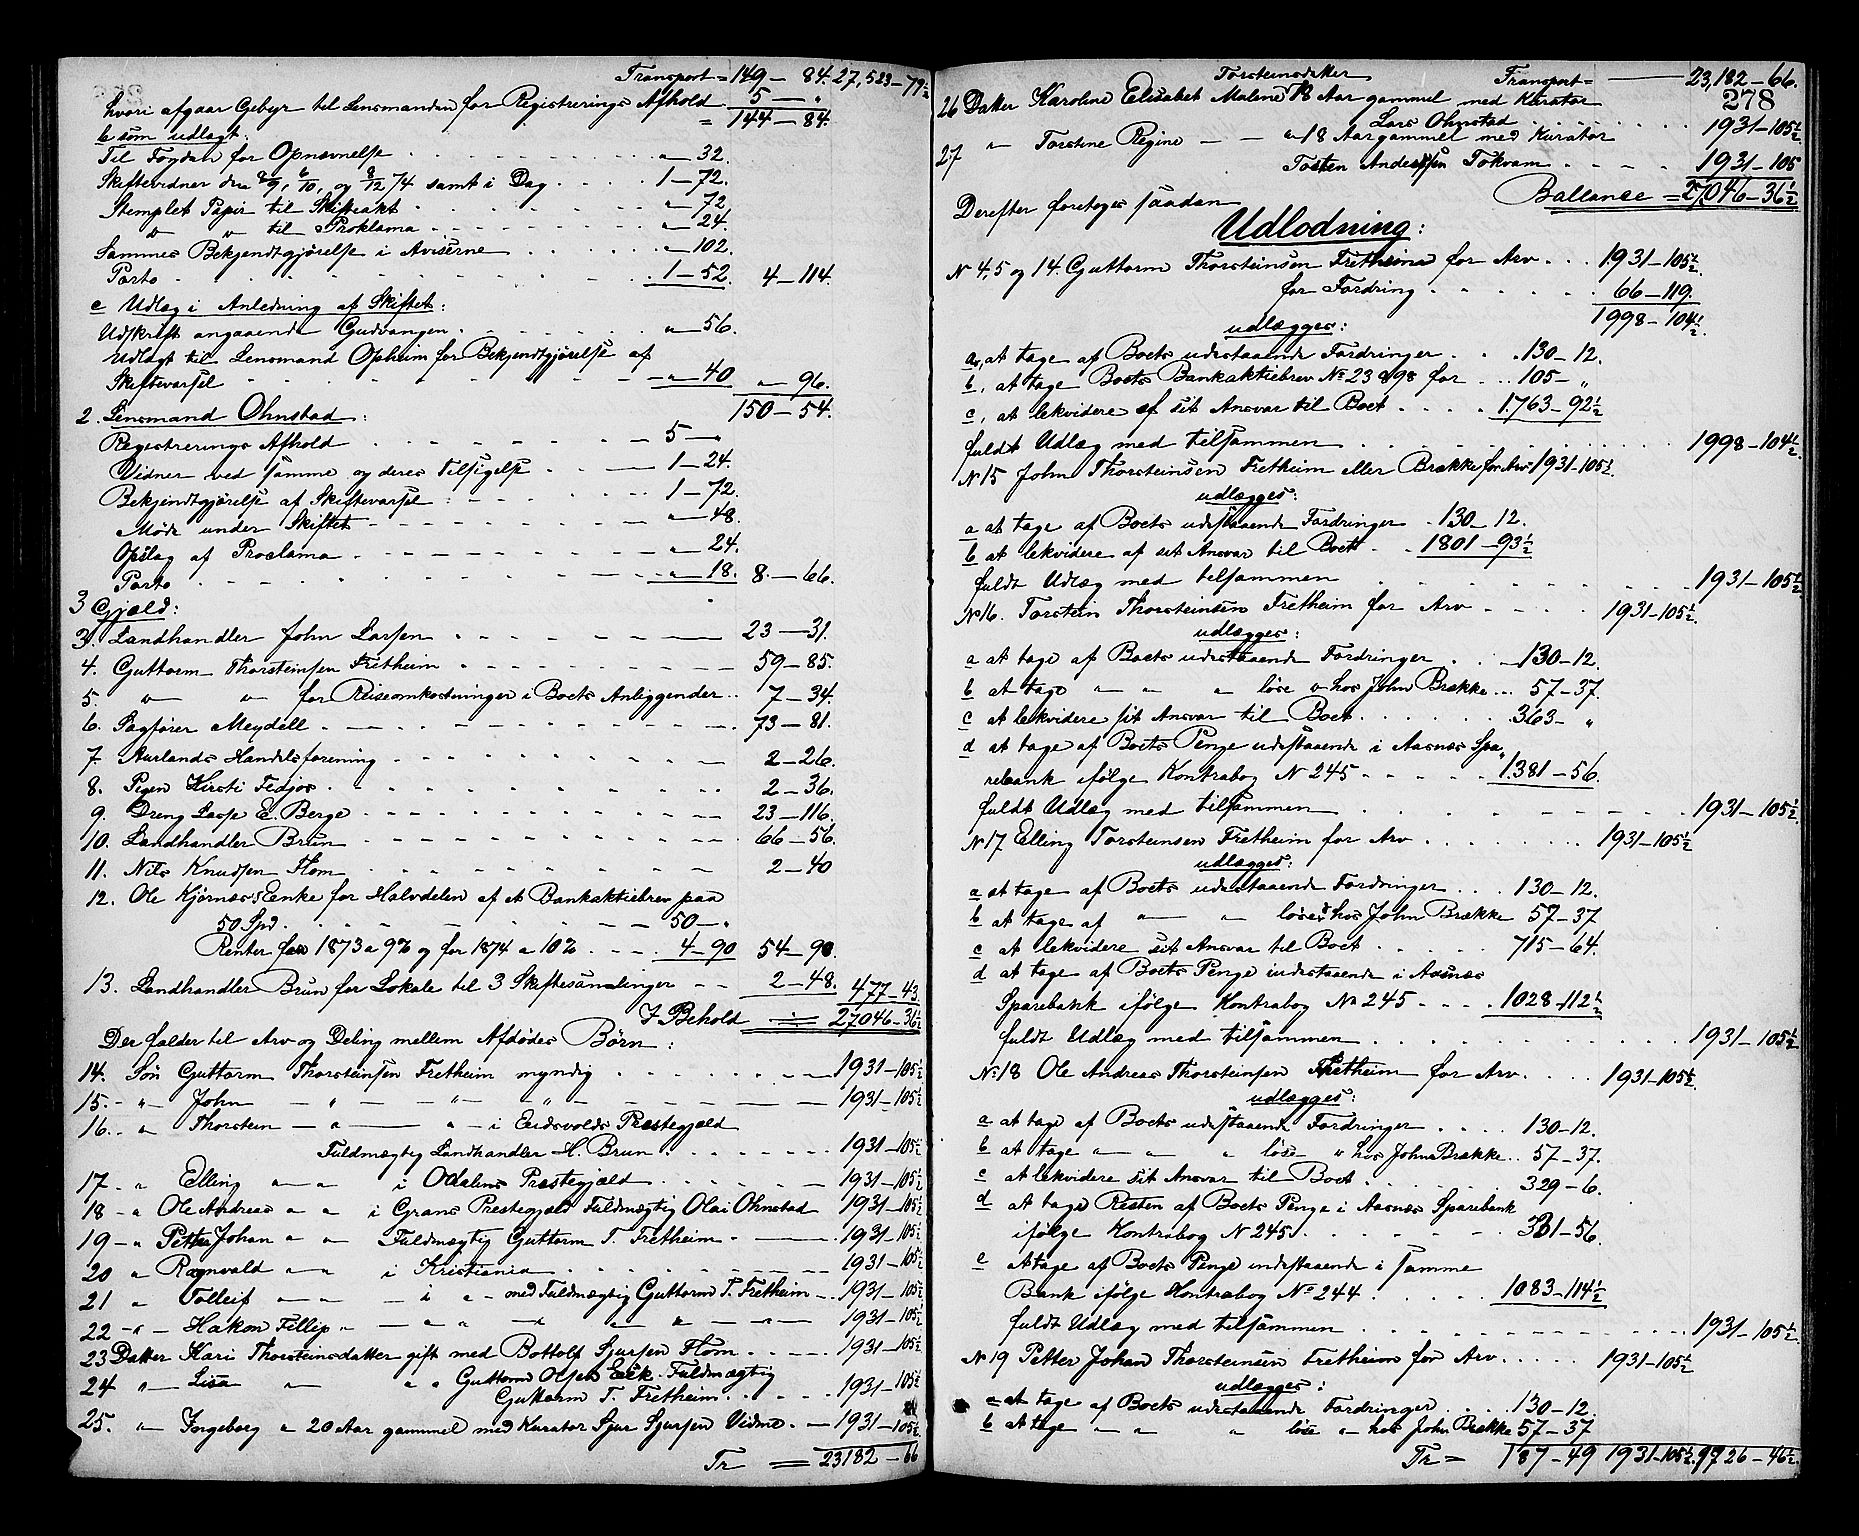 Transport = 149 – 84. 27,523 – 79½
hvori afgaar Gebyr til Lensmanden for Registrerings Afhold 5 – „
= 144 – 84.
b som udlagt:
Til Fogden for Opnævnelse „ – 32.
Skiftevidner den 8/9, 6/10, og 8/12 74 samt i Dag 1 – 72.
Stemplet Papir til Skifteakt „ – 72
„ „ til Proklama „ – 24.
Sammes Bekjendtgjørelse i Aviserne „ – 102.
Porto 1 – 52. 4 – 114.
c Udlæg i Anledning af Skiftet:
Udskrift angaaende Gudvangen „ – 56.
Udlagt til Lensmand Opheim for Bekjendtgjørelse af
Skiftevarsel „ – 40 „ – 96.
150 – 54.
2. Lensmand Ohnstad:
Registrerings Afhold 5 – „
Vidner ved samme og deres Tilsigelse 1 – 24.
Bekjendtgjørelse af Skiftevarsel 1 – 72.
Møde under Skiftet „ – 48.
Opslag af Proclama „ – 24.
Porto „ – 18. 8 – 66.
3 Gjæld:
3. Landhandler John Larsen 23 – 31.
4. Guttorm Thorsteinsen Fretheim 59 – 85.
5. „ „ for Reiseomkostninger i Boets Anliggender 7 – 34.
6. Sagfører Meydell 73 – 81.
7. Aurlands Handelsforening 2 – 26.
8. Pigen Kirsti Fedjos 2 – 36.
9. Dreng Lasse E. Berge 23 – 116.
10. Landhandler Brun 66 – 56.
11. Nils Knudsen Flom 2 – 40
12. Ole Kjørnæs Enke for Halvdelen af et Bankaktiebrev paa
50 Spd. 50 – „
Renter for 1873 a 9% og for 1874 a 10% 4 – 90 54 – 90.
13. Landhandler Brun for Lokale til 3 Skiftesamlinger 2 – 48. 477 – 43
I Behold = 27046 – 36½
Der falder til Arv og Deling mellem Afdødes Børn:
14. Søn Guttorm Thorsteinsen Fretheim myndig 1931 – 105½
15. „ John „ „ „ 1931 – 105½
16. „ Thorstein „ „ i Eidsvolds Præstegjæld
Fuldmægtig Landhandler H. Brun 1931 – 105½
17. „ Elling „ „ i Odalens Præstegjæld 1931 – 105½
18 „ Ole Andreas „ „ i Grans Præstegjæld Fuldmægtig Olai Ohnstad 1931 – 105½
19 „ Petter Johan „ „ Fuldmægtig Guttorm T. Fretheim 1931 – 105½
20 „ Ragnvald „ „ i Kristiania 1931 – 105½
21 „ Tolleif „ „ i „ med Fuldmægtig Guttorm T. Fretheim 1931 – 105½
22 „ Hakon Fillip „ „ „ „ „ „ „ 1931 – 105½
23 Datter Kari Thorsteinsdatter gift med Bottolf Sjursen Flom 1931 – 105½
24 „ Lisa „ „ „ Guttorm Olsen Eek. Fuldmægtig
Guttorm T. Fretheim 1931 – 105½
25. „ Ingeborg „ 20 Aar gammel med Kurator Sjur Sjursen Vidme 1931 – 105½
Tr = 23182 – 66
Transport = 23,182 – 66.
278
Torsteinsdatter
26 Datter Karoline Elisabet Malene 18 Aar gammel med Kurator
Lars Ohnstad 1931 – 105½
27 „ Torstine Regine „ 18 Aar gammel med Kurator
Tosten Andersen Tokvam 1931 – 105
Ballance = 27046 – 36½
Derefter foretoges saadan
Udlodning:
N 4, 5 og 14. Guttorm Thorsteinsen Fretheim for Arv 1931 – 105½
for Fordring 66 – 119.
1998 – 104½
udlægges:
a, at tage af Boets udestaaende Fordringer 130 – 12.
b, at tage Boets Bankaktiebrev No 23898 for 105 – „
c, at lekvidere af sit Ansvar til Boet 1763 – 92½
fuldt Udlæg med tilsammen 1998 – 104½
N 15 John Thorsteinsen Fretheim eller Brække for Arv 1931 – 105½
udlægges:
a at tage af Boets udestaaende Fordringer 130 – 12.
b at lekvidere af sit Ansvar til Boet 1801 – 93½
fuldt Udlæg med tilsammen 1931 – 105½
No 16. Torstein Thorsteinsen Fretheim for Arv 1931 – 105½
udlægges:
a at tage af Boets udestaaende Fordringer 130 – 12.
b at tage „ „ „ løse „ hos John Brække 57 – 37.
c at lekvidere sit Ansvar til Boet 363 – „
d at tage af Boets Penge indestaaende i Aasnæs Spa„
rebank ifølge Kontrabog N 245 1381 – 56.
fuldt Udlæg med tilsammen 1931 – 105½
N 17 Elling Torsteinsen Fretheim for Arv 1931 – 105½
udlægges:
a at tage af Boets udestaaende Fordringer 130 – 12.
b at tage af „ „ løse „ hos John Brække 57 – 37
c at lekvidere sit Ansvar til Boet 715 – 64.
d at tage af Boets Penge indestaaende i Aasnæs
Sparebank ifølge Kontrabog No 245 1028 – 112½
fuldt Udlæg med tilsammen 1931 – 105½
No 18 Ole Andreas Thorsteinsen Fretheim for Arv 1931 – 105½
udlægges:
a at tage af Boets udestaaende Fordringer 130 – 12.
b at tage „ „ „ løse „ hos John Brække 57 – 37.
c at lekvidere sit Ansvar til Boet 329 – 6.
d at tage Resten af Boets Penge i Aasnæs Sparebank
ifølge Kontrabog N 245 331 – 56.
e at tage af Boets Penge indestaaende i samme
Bank ifølge Kontrabog No 244 1083 – 114½
fuldt Udlæg med tilsammen 1931 – 105½
No 19 Petter Johan Thorsteinsen Fretheim for Arv 1931 – 105½
udlægges:
a at tage af Boets udestaaende Fordringer 130 – 12.
b at tage „ „ „ løse „ hos John Brække 57 – 37
Tr = 187 – 49 1931 – 105½ 9726 – 46½